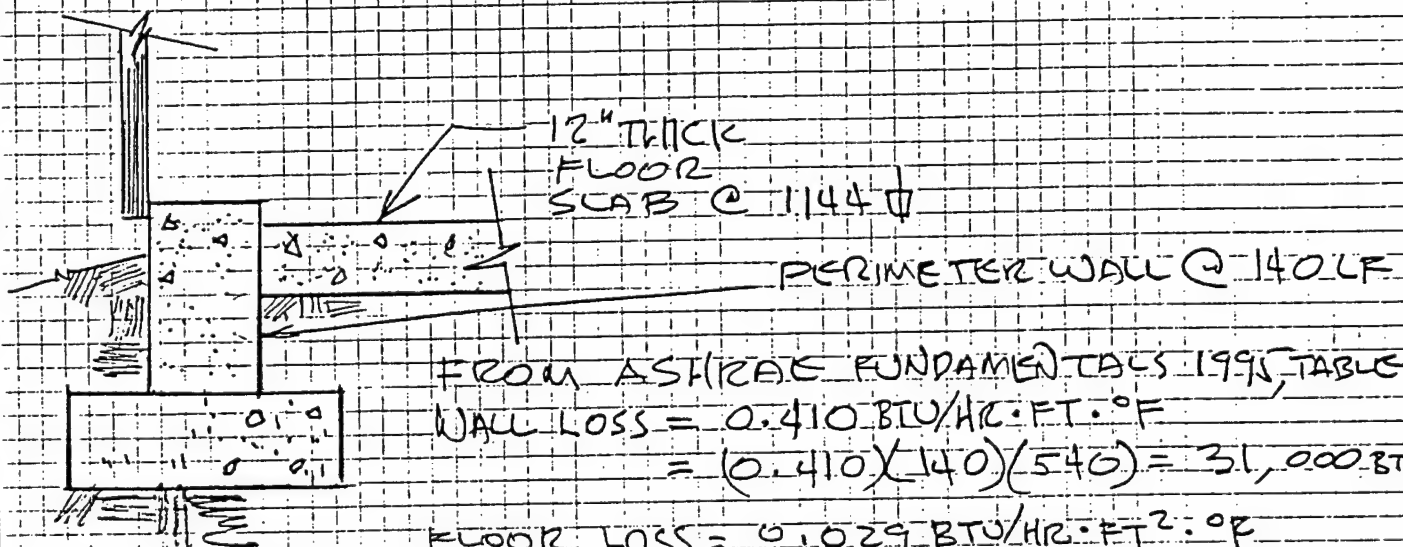 12" THICK
FLOOR
SLAB @ 1144 ⏍
PERIMETER WALL @ 140 LF
FROM ASHRAE FUNDAMENTALS 1995, TABLE
WALL LOSS = 0.410 BTU/HR·FT·°F
= (0.410)(140)(540) = 31,000 BT
FLOOR LOSS = 0.029 BTU/HR·FT²·°F